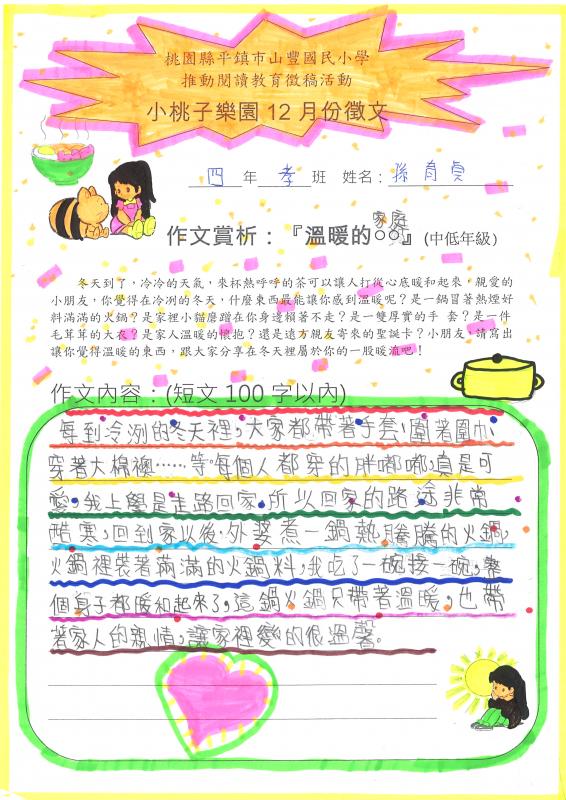 桃園縣平鎮市山豐國民小學
推動閱讀教育徵稿活動
小桃子樂園 12 月份徵文
四 年 孝 班 姓名：孫 貞
家庭
作文賞析：『溫暖的○○』(中低年級)
冬天到了，冷冷的天氣，來杯熱呼呼的茶可以讓人打從心底暖和起來，親愛的
小朋友，你覺得在冷冽的冬天，什麼東西最能讓你感到溫暖呢？是一鍋冒著熱煙好
料滿滿的火鍋？是家裡小貓磨蹭在你身邊賴著不走？是一雙厚實的手 套？是一件
毛茸茸的大衣？是家人溫暖的懷抱？還是遠方親友寄來的聖誕卡？小朋友，請寫出
讓你覺得溫暖的東西，跟大家分享在冬天裡屬於你的一股暖流吧！
作文內容：(短文 100 字以內)
每到冷冽的冬天裡，大家都帶著手套，圍著圍巾，
穿著大棉襖……等每個人都穿的胖嘟嘟，真是可
愛，我上學是走路回家，所以回家的路途非常
酷寒，回到家以後，外婆煮一鍋熱騰騰的火鍋，
火鍋裡裝著滿滿的火鍋料，我吃了一碗接一碗，整
個身子都暖和起來了，這鍋火鍋只帶著溫暖，也帶
著家人的親情，讓家裡變的很溫馨。